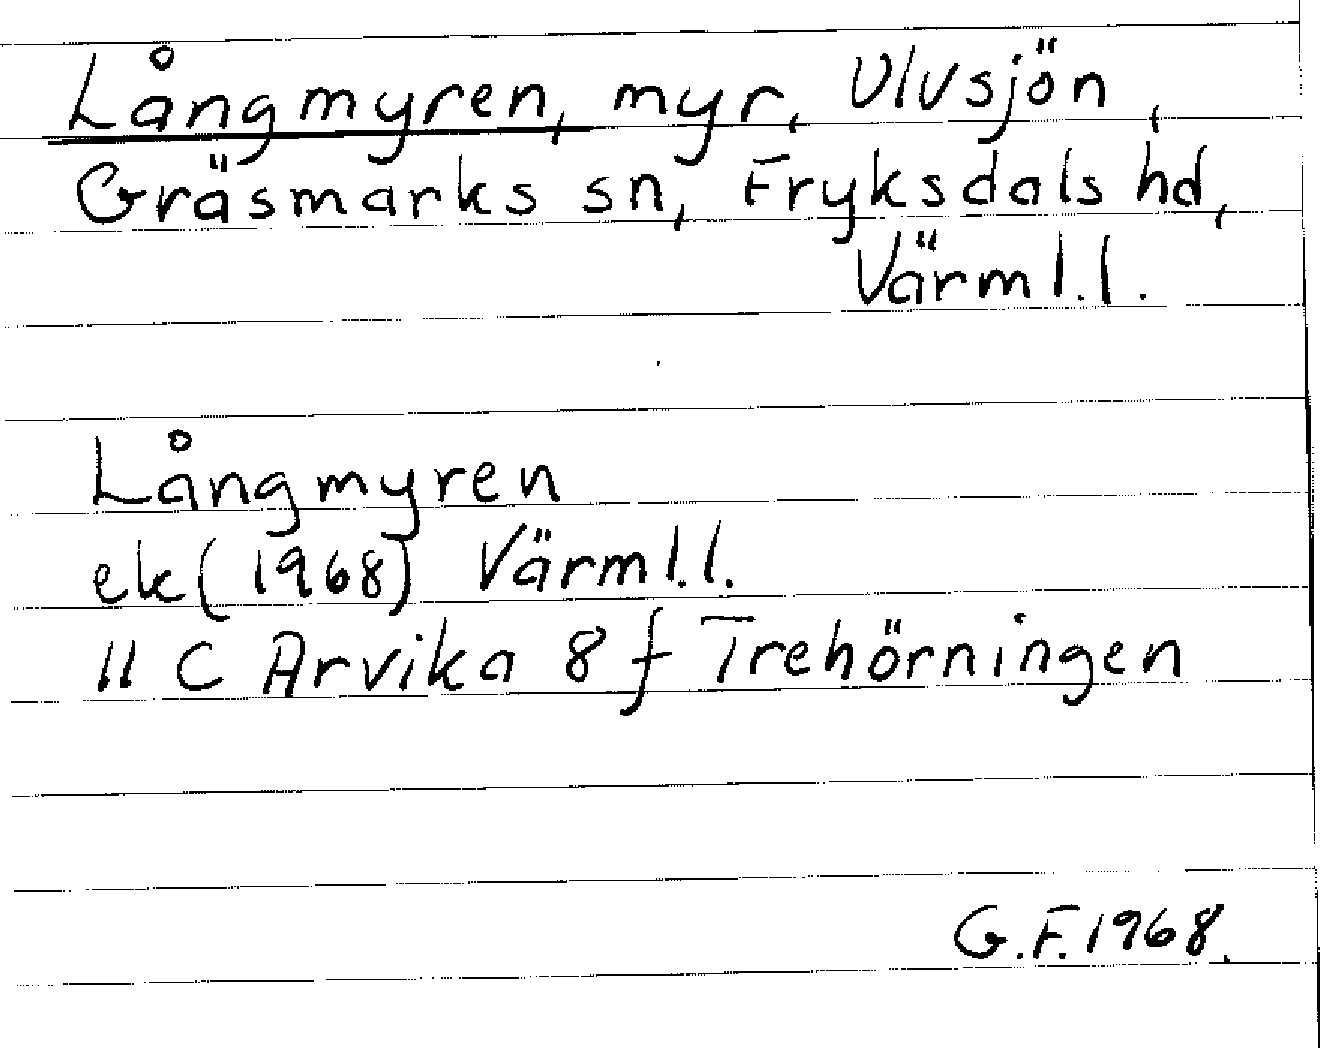 Långmyren, myr, Ulvsjön,
Gräsmarks sn, Fryksdals hd,
Värml.l.
Långmyren
ek (1968) Värml.l.
11 C Arvika 8 f Trehörningen
G.F. 1968.